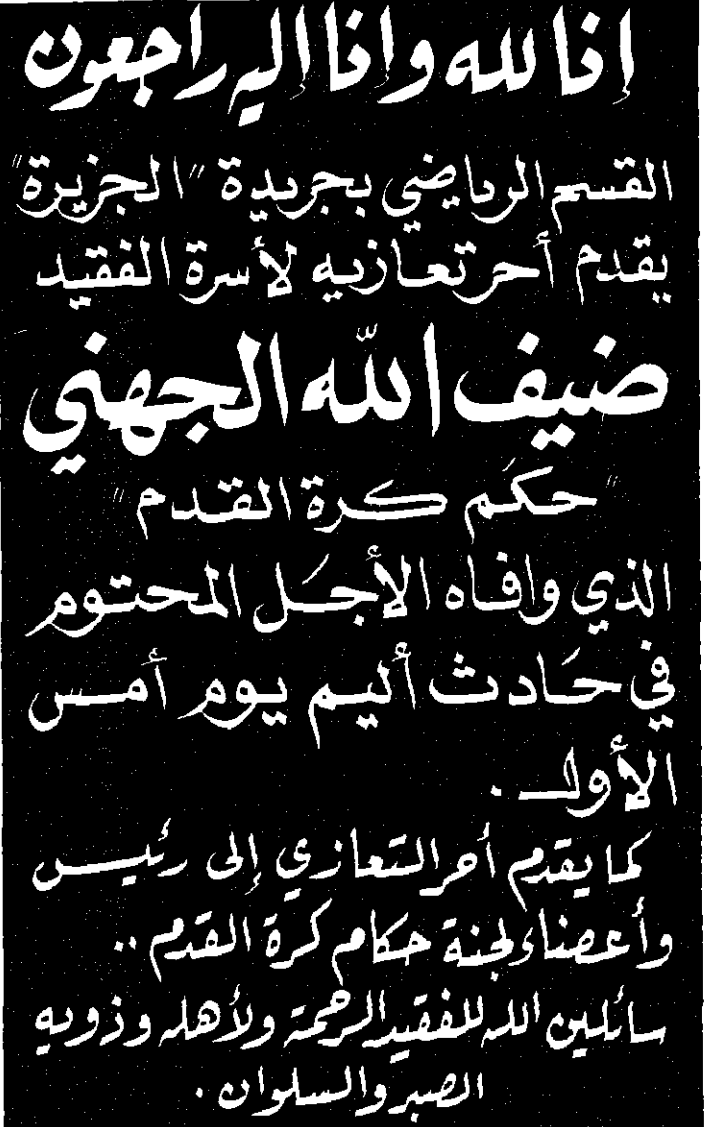 إنا لله وإنا إليه راجعون
القسم الرياضي بجريدة "الجزيرة"
يقدم أحر تعازيه لأسرة الفقيد
ضيف الله الجهني
"حكَم كرة القدم"
الذي وافاه الأجَل المحتوم
في حَادث أليم يوم أمس
الأول .
كما يقدم أحر التعازي إلى رئيس
وأعضاء لجنة حكام كرة القدم ..
سائلين الله للفقيد الرحمة ولأهله وذويه
الصبر والسلوان .